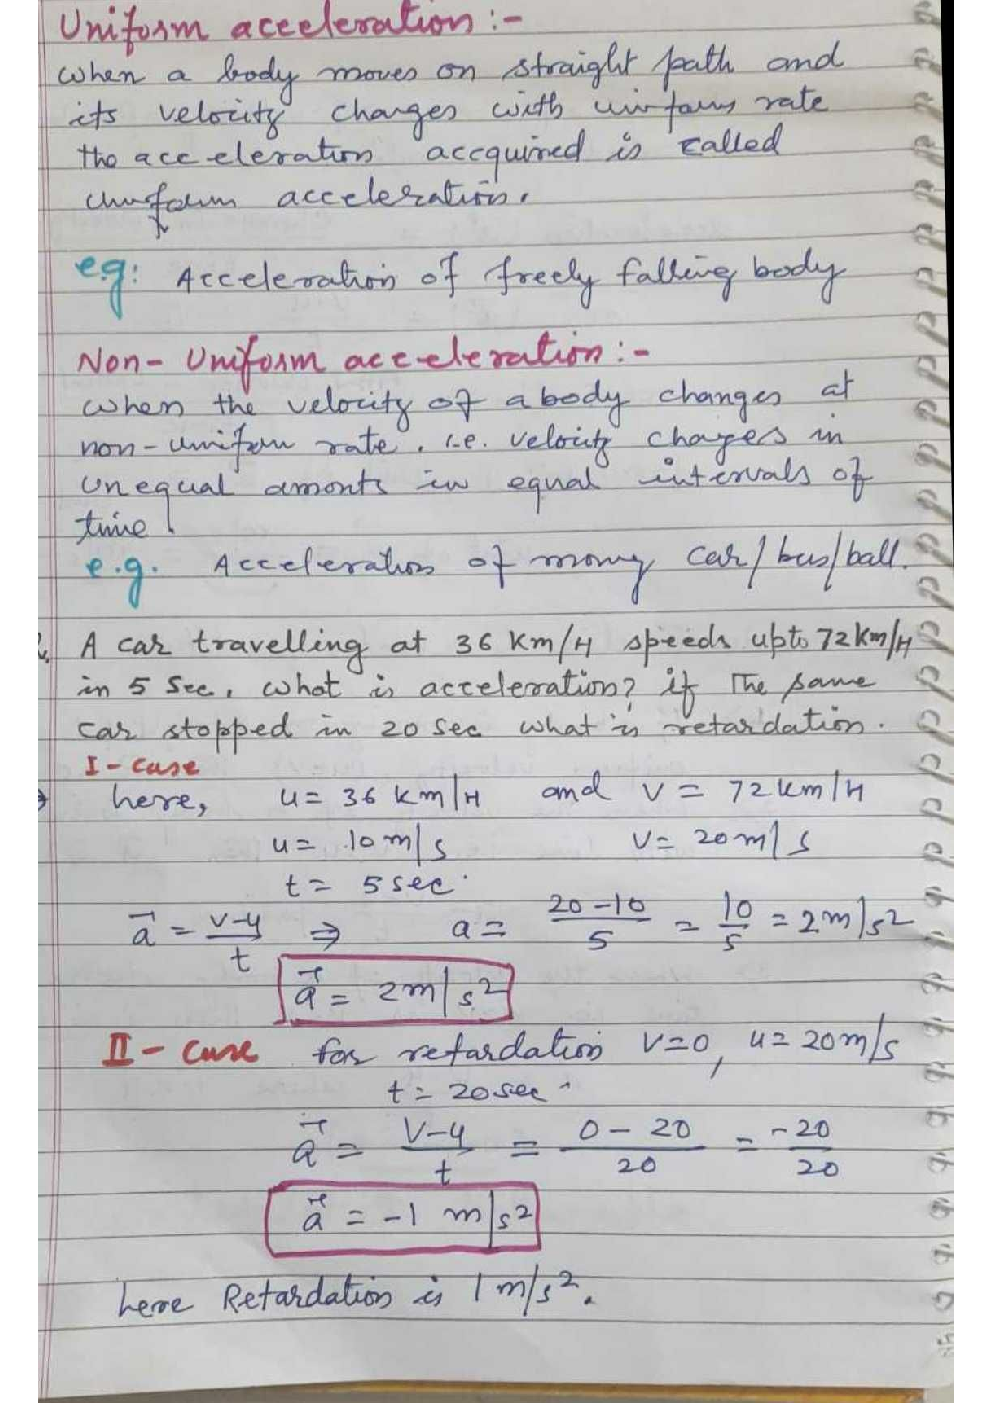 Uniform acceleration :-
when a body moves on straight path and
its velocity changes with uniform rate
the acceleration accquired is called
uniform acceleration.
e.g: Acceleration of freely falling body
Non-Uniform acceleration :-
when the velocity of a body changes at
non-uniform rate. i.e. velocity changes in
unequal amonts in equal intervals of
time.
e.g. Acceleration of moving car/bus/ball.
A car travelling at 36 Km/H speeds upto 72Km/H
in 5 Sec. What is acceleration? if The same
car stopped in 20 sec what is retardation.
I - case
here, u= 36 km/H and v= 72km/H
u= 10 m/s v= 20m/s
t= 5sec.
a⃗ = v-u/t ⇒ a= 20-10/5 = 10/5 = 2m/s²
a⃗ = 2m/s²
II - case for retardation v=0, u= 20m/s
t= 20sec.
a⃗ = v-u/t = 0-20/20 = -20/20
a⃗ = -1 m/s²
here Retardation is 1 m/s².